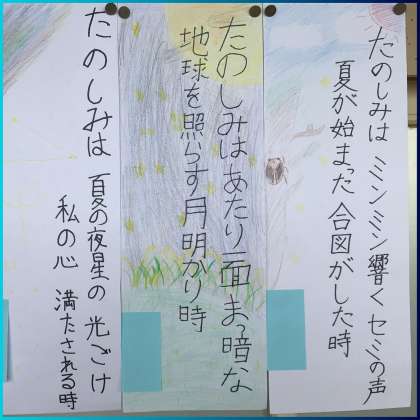 たのしみは ミンミン響くセミの声
夏が始まった 合図がした時
たのしみはあたり一面まっ暗な
地球を照らす月明かり時
たのしみは 夏の夜星の 光ごけ
私の心 満たされる時